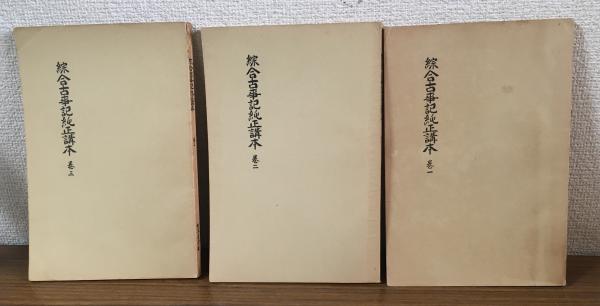 綜合古事記純正講本 巻三
綜合古事記純正講本 巻二
綜合古事記純正講本 巻一